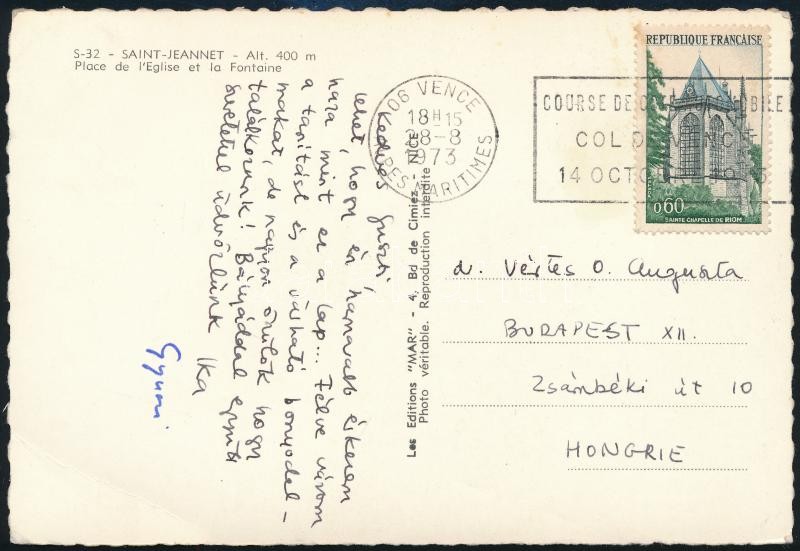 S-32 - SAINT-JEANNET - Alt. 400 m
Place de l'Eglise et la Fontaine
Kedves Guszti,
lehet, hogy én hamarabb érkezem
haza mint ez a lap... Félve várom
a tanítást és a várható bonyodal-
makat, de nagyon örülök hogy
találkozunk! Bátyáddal együtt
szeretettel üdvözlünk Ika
Gyuri
Les Editions "MAR" - 4, Bd de Cimiez - NICE
Photo véritable. Reproduction interdite
06 VENCE
18H15
28-8
1973
ALPES MARITIMES
COURSE DE
COL DE VENCE
14 OCTOBRE
REPUBLIQUE FRANÇAISE
0,60
SAINTE CHAPELLE DE RIOM
dr. Vértes O. Auguszta
BUDAPEST XII.
Zsámbéki út 10
HONGRIE